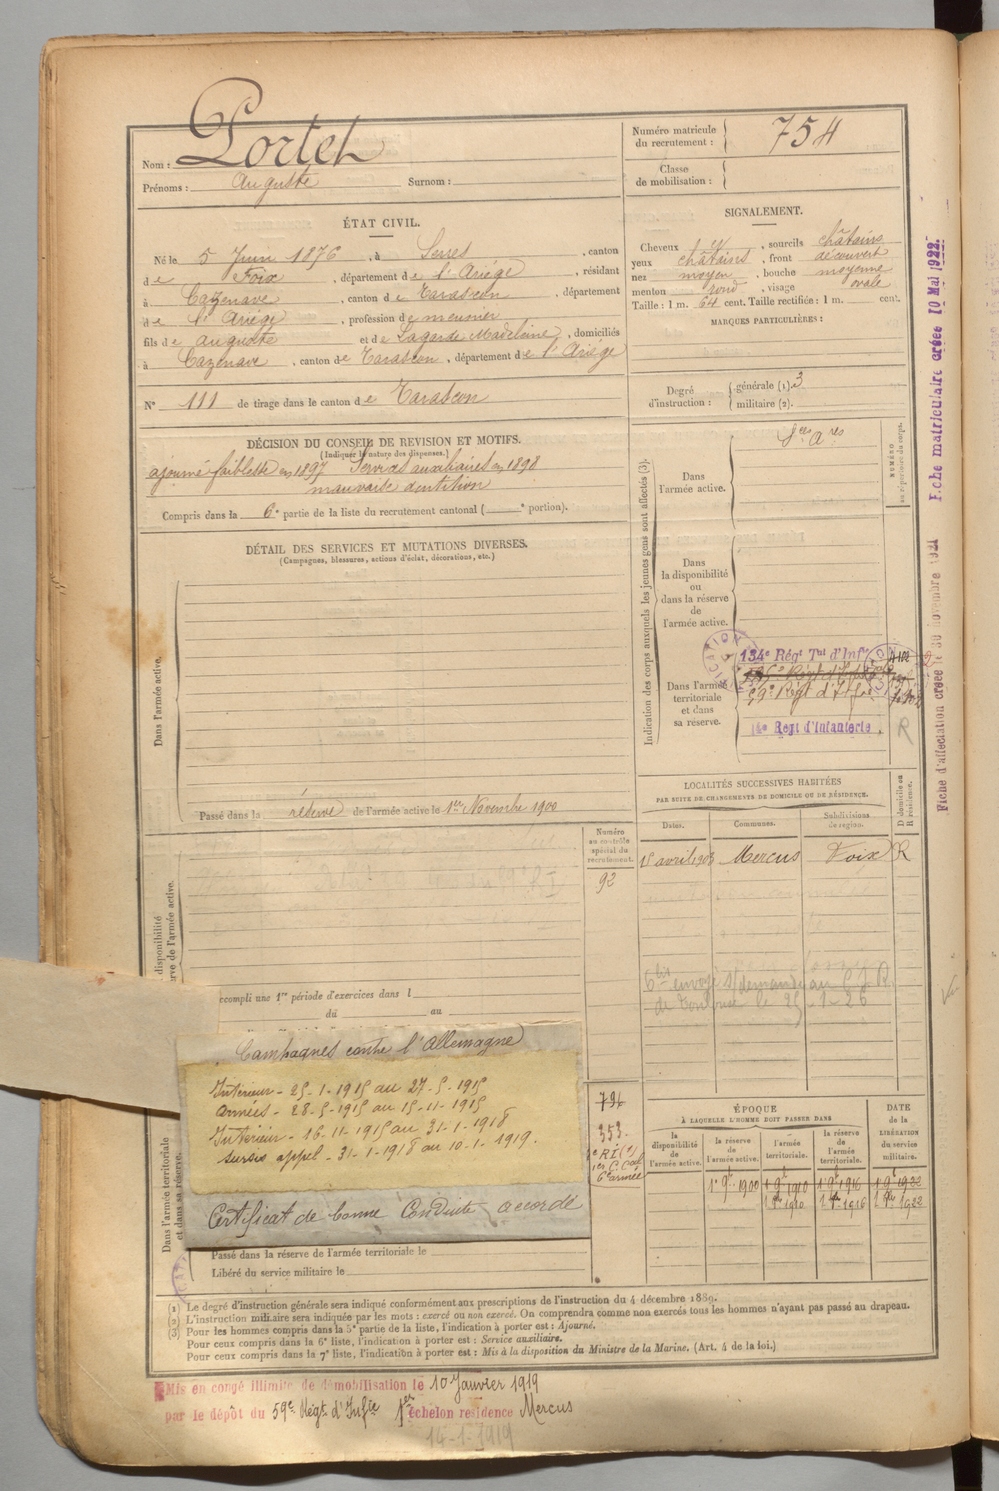 Nom : Portet
Prénoms : Auguste Surnom :
Numéro matricule du recrutement : 754
Classe de mobilisation :
ÉTAT CIVIL.
Né le 5 Juin 1876, à Serres, canton
de Foix, département de l'Ariège, résidant
à Cazenave, canton de Tarascon, département
de l'Ariège, profession de meunier
fils de Auguste et de Lagarde Madeleine, domiciliés
à Cazenave, canton de Tarascon, département de l'Ariège
N° 111 de tirage dans le canton de Tarascon
SIGNALEMENT.
Cheveux et, sourcils châtains
yeux châtains, front découvert
nez moyen, bouche moyenne
menton rond, visage ovale
Taille : 1 m. 64 cent. Taille rectifiée : 1 m. cent.
MARQUES PARTICULIÈRES :
Degré d'instruction : générale (1). 3
militaire (2).
DÉCISION DU CONSEIL DE REVISION ET MOTIFS.
(Indiquer la nature des dispenses.)
ajourné faiblesse en 1897 Services auxiliaires en 1898
mauvaise dentition
Compris dans la 6e partie de la liste du recrutement cantonal ( e portion).
DÉTAIL DES SERVICES ET MUTATIONS DIVERSES.
(Campagnes, blessures, actions d'éclat, décorations, etc.)
Dans l'armée active.
Passé dans la réserve de l'armée active le 1er Novembre 1900
Indication des corps auxquels les jeunes gens sont affectés (3).
NUMÉRO au répertoire du corps.
Dans l'armée active.
Dans la disponibilité ou dans la réserve de l'armée active.
Dans l'armée territoriale et dans sa réserve.
134e Régt Tal d'Infie
59e Régt d'Infie
Regt d'Infanterie.
R
Fiche d'affectation créée le 30 novembre 1921 Fiche matriculaire créée 10 Mai 1922.
LOCALITÉS SUCCESSIVES HABITÉES
PAR SUITE DE CHANGEMENTS DE DOMICILE OU DE RÉSIDENCE.
D domicile ou R résidence.
Dates. Communes. Subdivisions de région.
15 avril 1903 Mercus Foix R
Numéro au contrôle spécial du recrutement.
92
6 bis envoyé s/demande au
de Toulouse le 25-1-26
disponibilité
rve de l'armée active.
ccompli une 1re période d'exercices dans l
du au
Campagnes contre l'Allemagne
Intérieur - 25-1-1915 au 27-5-1915
armées - 28-5-1915 au 15-11-1915
Intérieur - 16-11-1915 au 31-1-1918
sursis appel - 31-1-1918 au 10-1-1919.
Certificat de bonne Conduite accordé
794
353
6e armée
ÉPOQUE
À LAQUELLE L'HOMME DOIT PASSER DANS
la disponibilité de l'armée active.
la réserve de l'armée active.
l'armée territoriale.
la réserve de l'armée territoriale.
DATE de la LIBÉRATION du service militaire.
1er 9bre 1900 1er 9bre 1910 1er 9bre 1916 1er 9bre 1922
1910 1916 1922
Dans l'armée territoriale et dans sa réserve.
Passé dans la réserve de l'armée territoriale le
Libéré du service militaire le
(1) Le degré d'instruction générale sera indiqué conformément aux prescriptions de l'instruction du 4 décembre 1889.
(2) L'instruction militaire sera indiquée par les mots : exercé ou non exercé. On comprendra comme non exercés tous les hommes n'ayant pas passé au drapeau.
(3) Pour les hommes compris dans la 5e partie de la liste, l'indication à porter est : Ajourné.
Pour ceux compris dans la 6e liste, l'indication à porter est : Service auxiliaire.
Pour ceux compris dans la 7e liste, l'indication à porter est : Mis à la disposition du Ministre de la Marine. (Art. 4 de la loi.)
Mis en congé illimité de démobilisation le 10 Janvier 1919
par le dépôt du 59e Régt d'Infie 1er échelon residence Mercus
14-1-1919